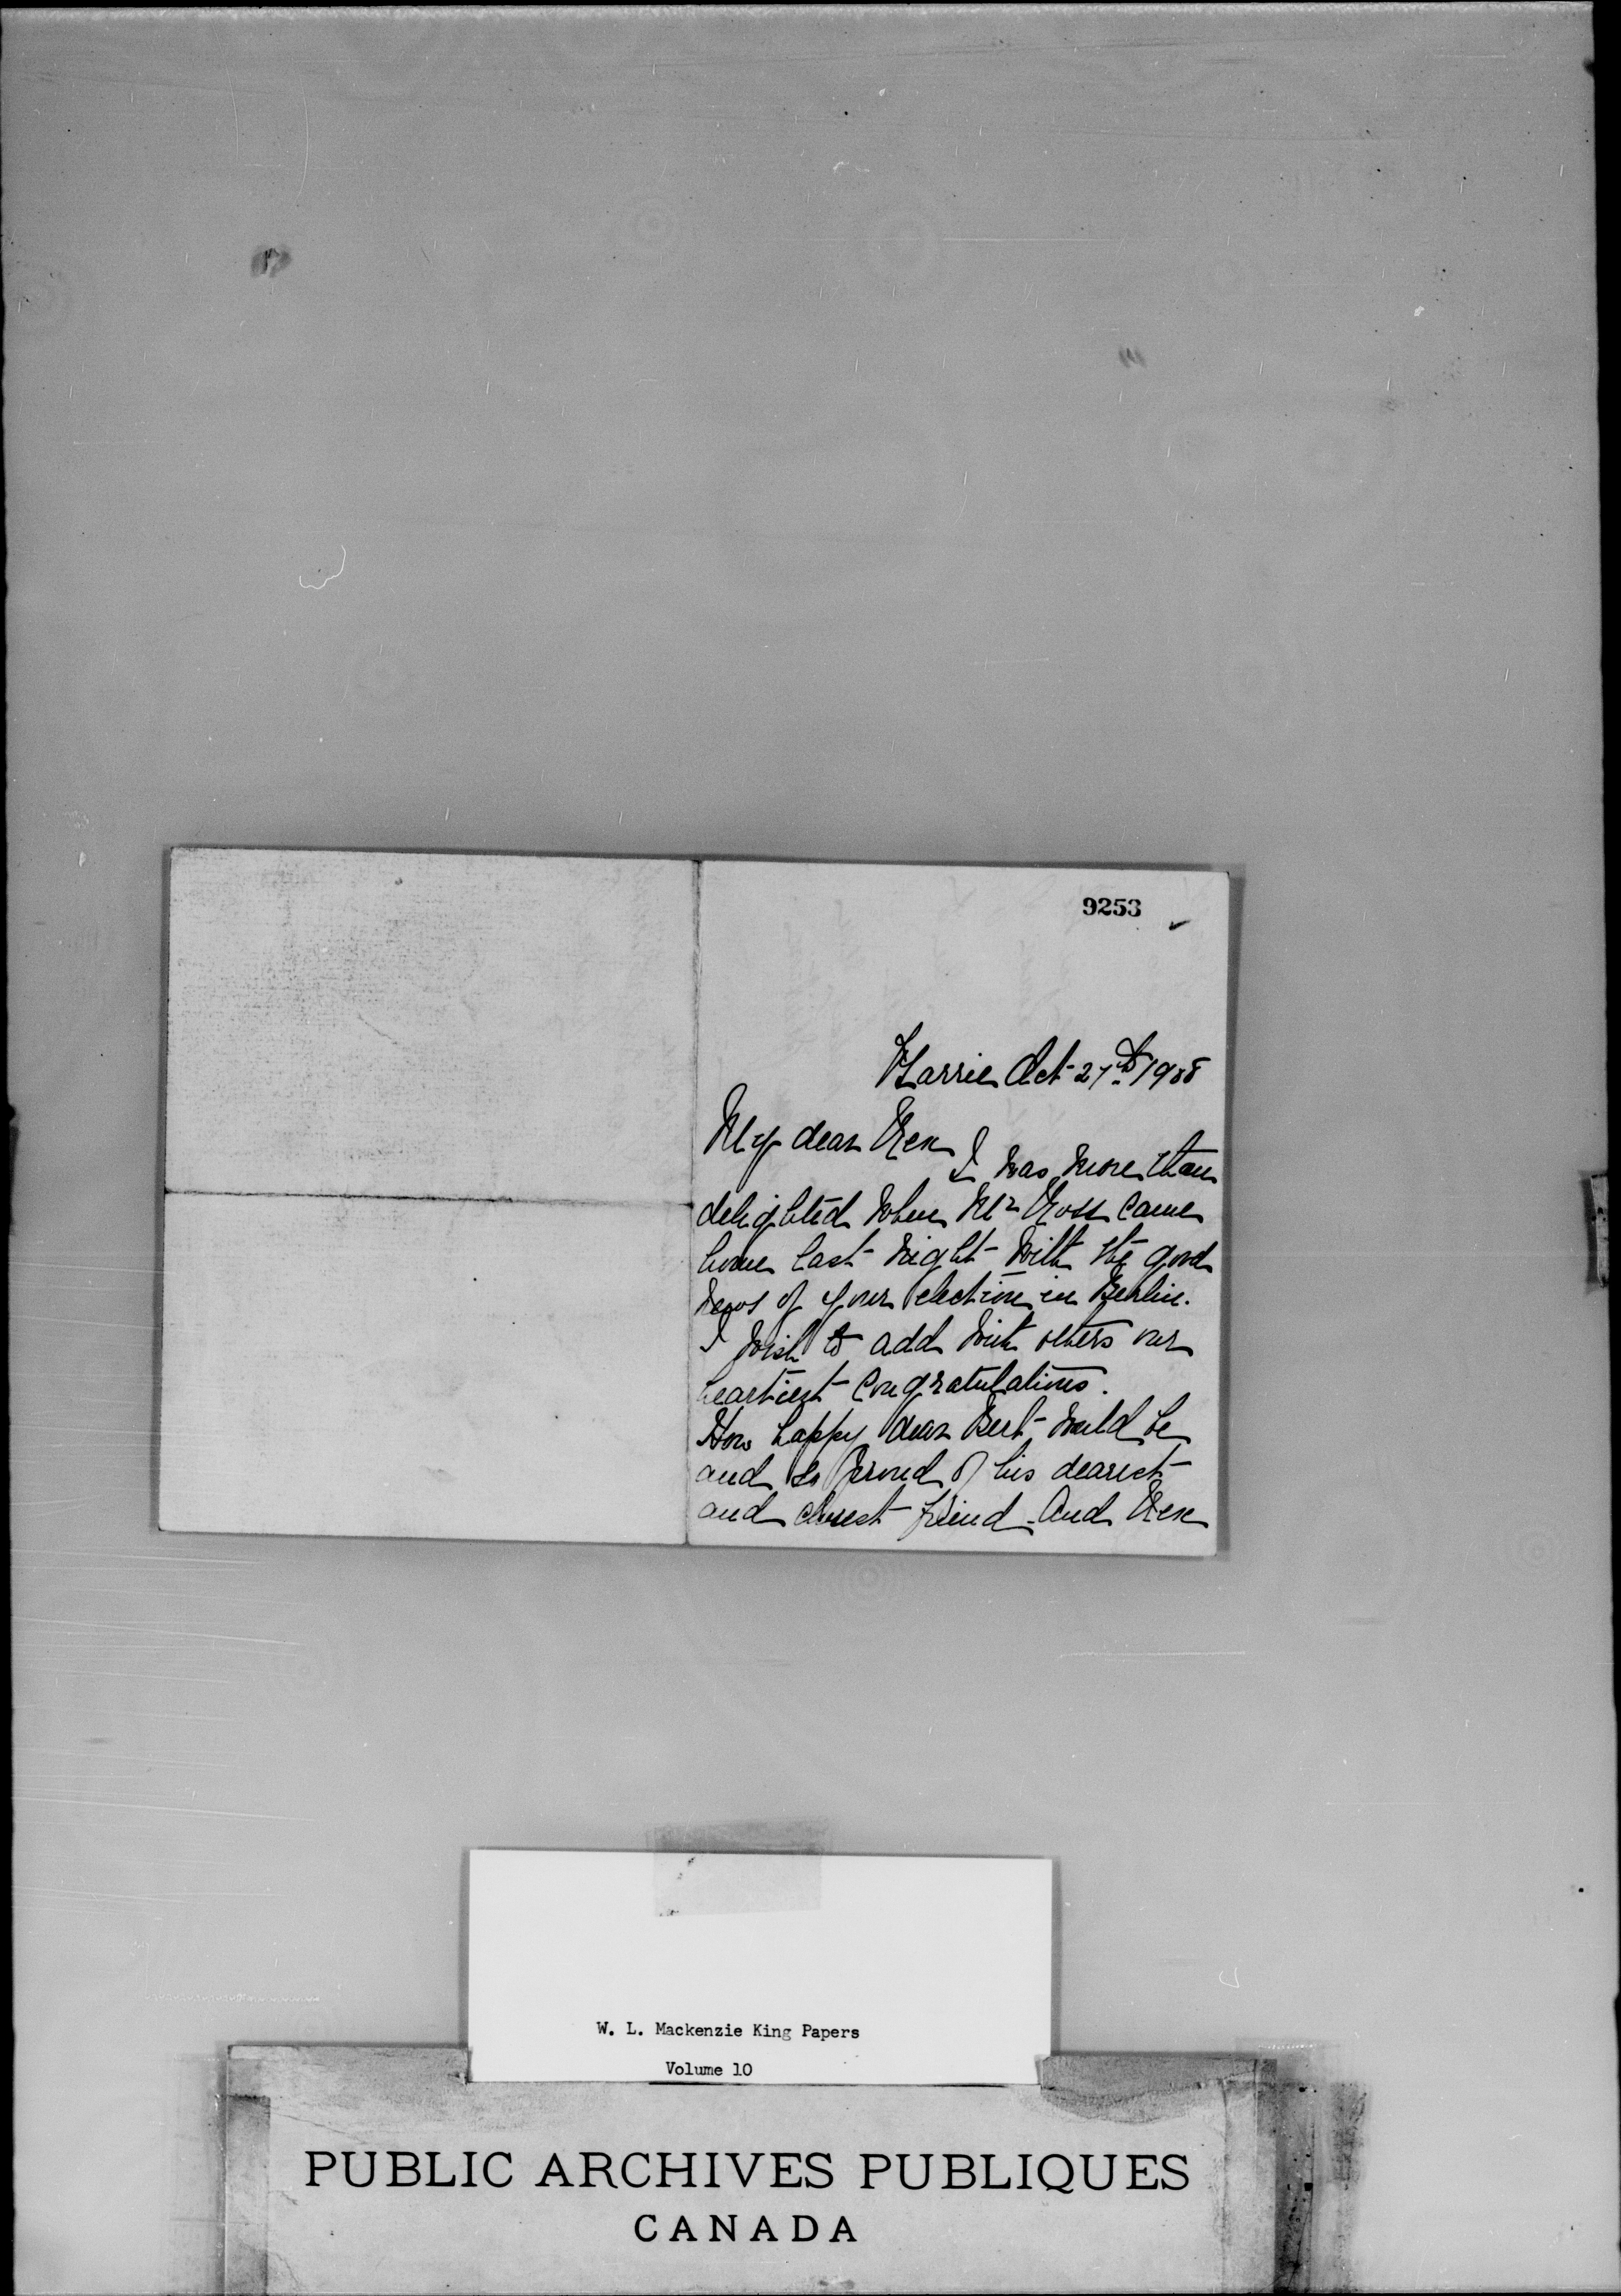 9253
Barrie Oct 27th 1908
My dear Rex
I was more than
delighted when Mr Ross came
home last night with the good
news of your election in Berlin.
I wish to add with others our
heartiest Congratulations.
How happy dear Bert would be
and so proud of his dearest
and closest friend. And Rex
W. L. Mackenzie King Papers
Volume 10
PUBLIC ARCHIVES PUBLIQUES
CANADA